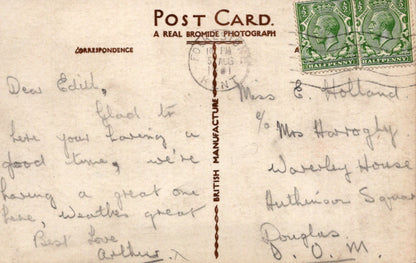 POST CARD.
A REAL BROMIDE PHOTOGRAPH
CORRESPONDENCE
Dear Edith,
Glad to
here your having a
good time, we're
having a great one
here, weather great
Best Love
Arthur. X
BRITISH MANUFACTURE
PM
AUG
KENT
HALFPENNY
HALFPENNY
Miss E. Holland
c/o Mrs Harrogby
Waverley House
Hutchinson Square
Douglas.
I. O. M.